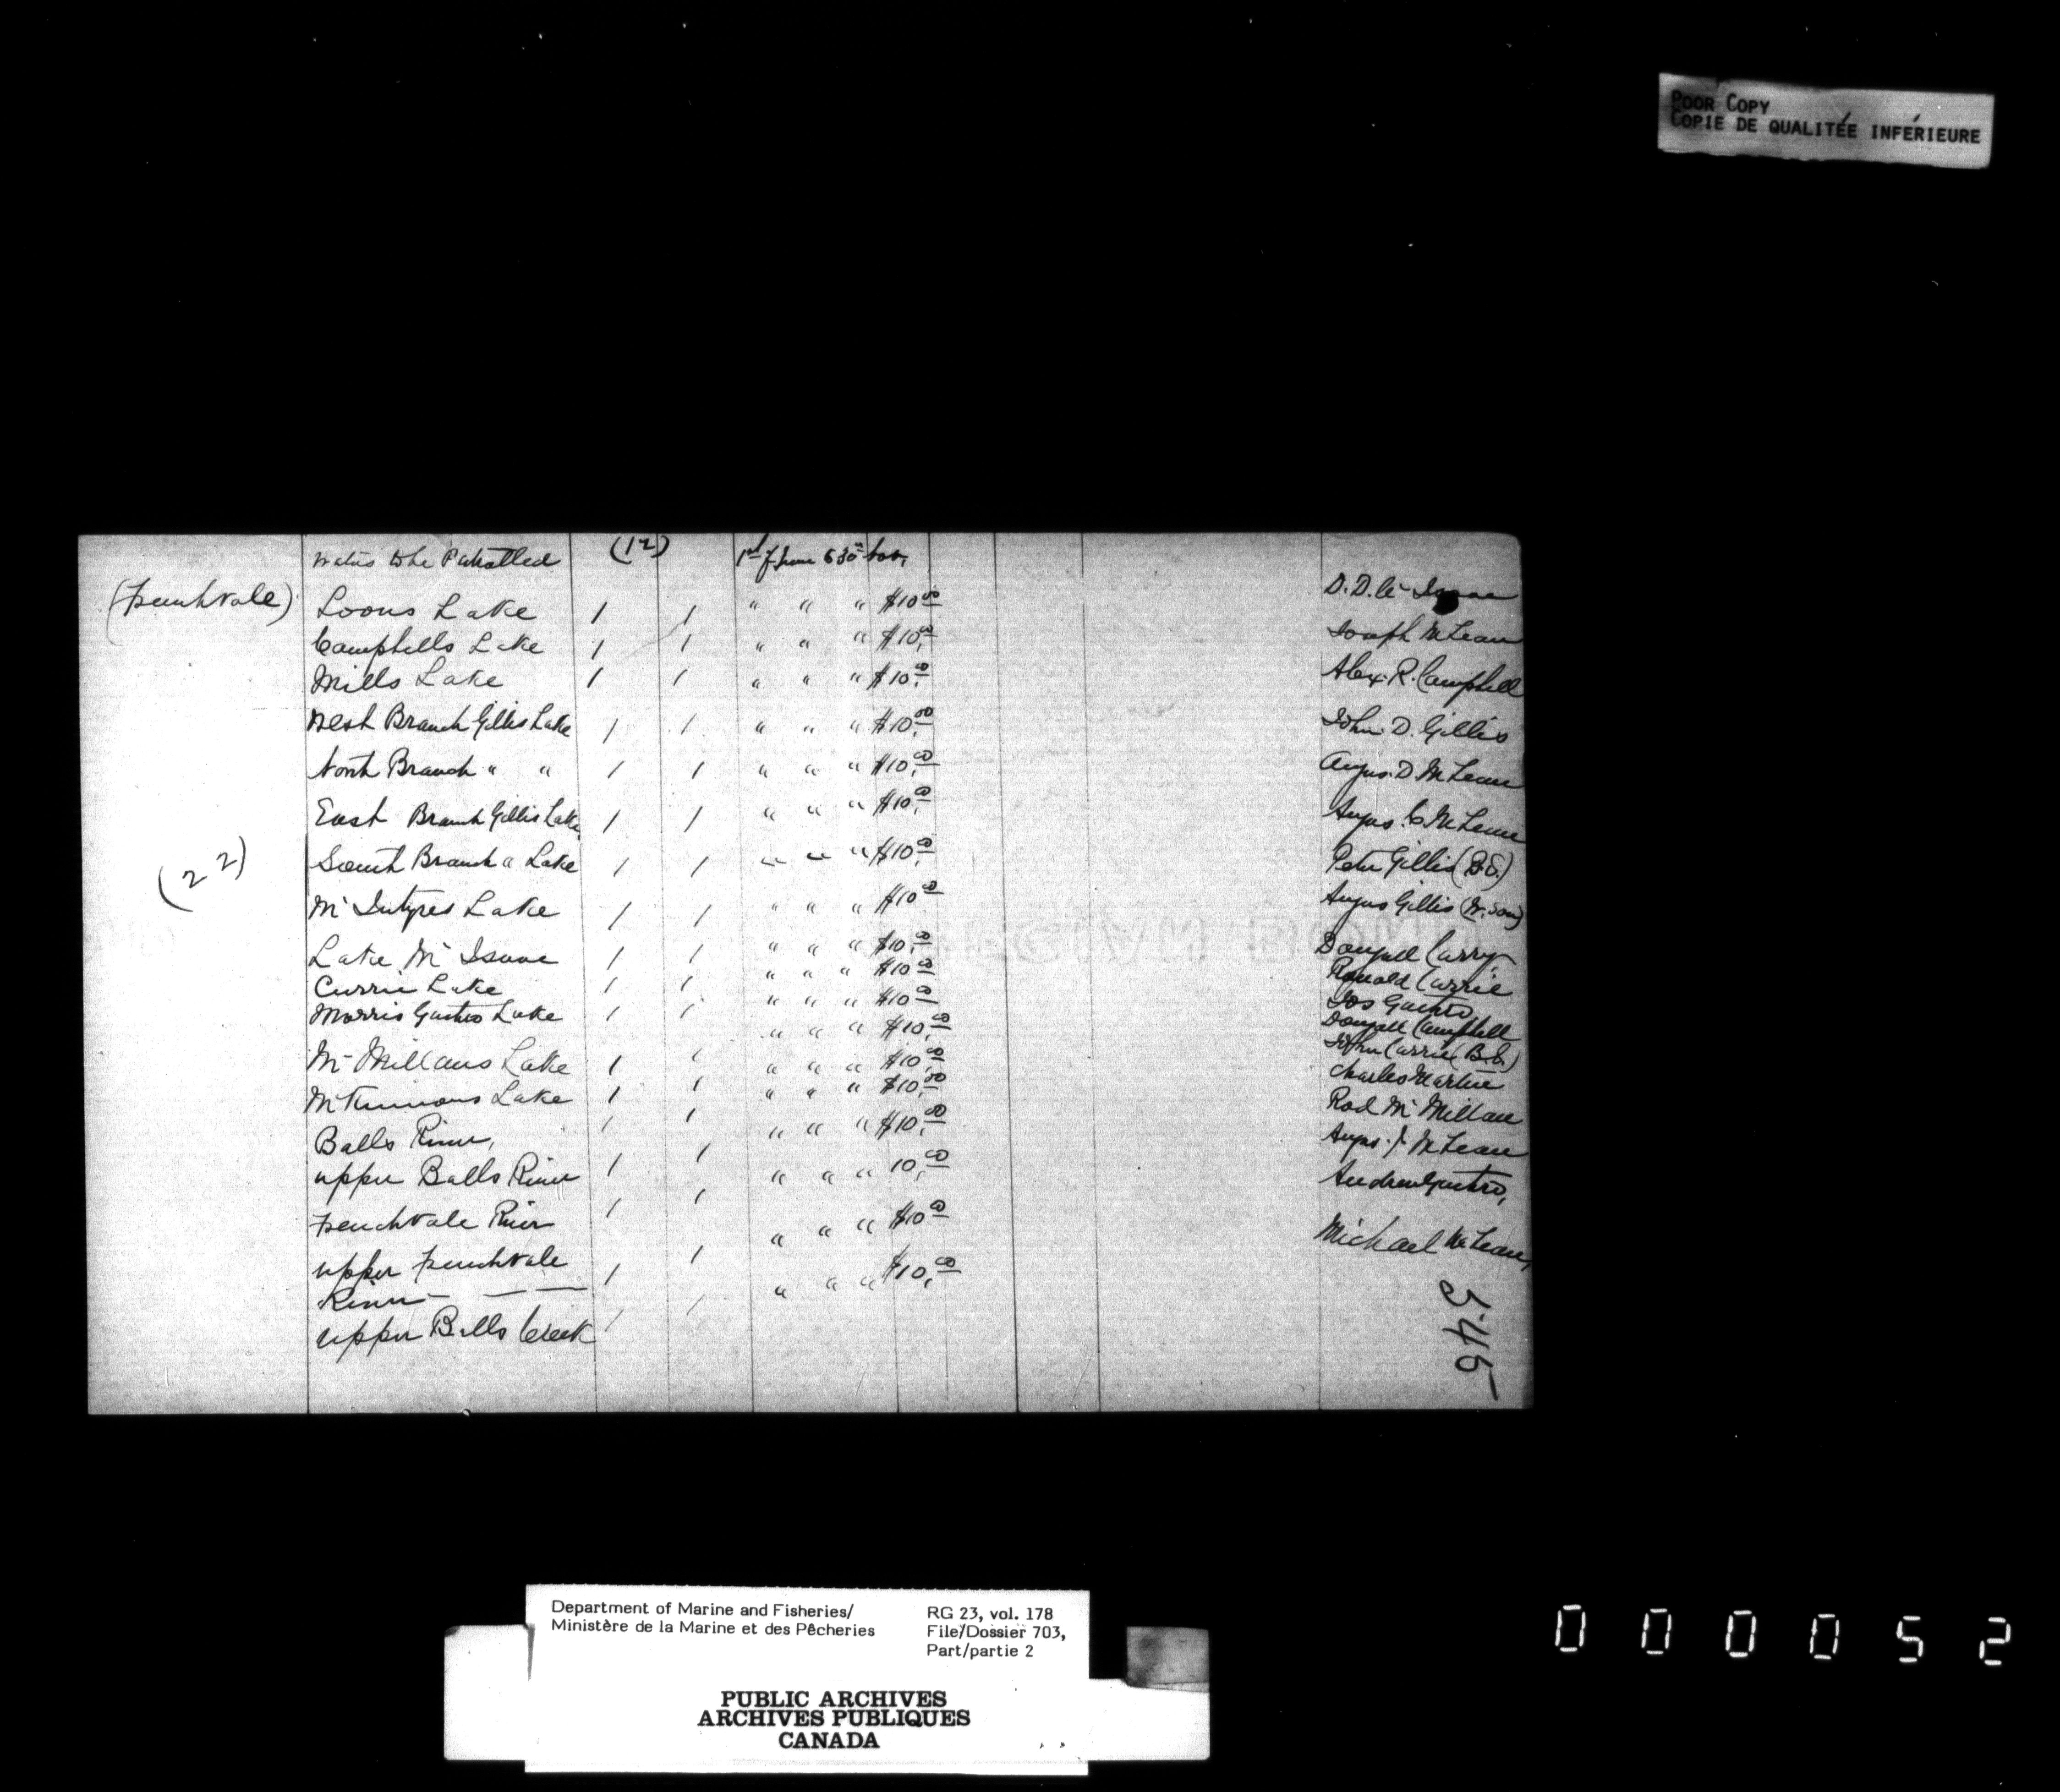 POOR COPY
COPIE DE QUALITÉE INFÉRIEURE
Waters to be Patrolled (12) 1st of June to 30th Nov,
(Frenchvale) Loons Lake 1 1 " " " $10.00 D. D. Mc Isaac
Campbells Lake 1 1 " " " $10.00 Joseph McLean
Mills Lake 1 1 " " " $10.00 Alex. R. Campbell
West Branch Gillis Lake 1 1 " " " $10.00 John. D. Gillis
North Branch " " 1 1 " " " $10.00 Angus. D. McLean
East Branch Gillis Lake, 1 1 " " " $10.00 Angus. C. McLean
(22) South Branch " Lake 1 1 " " " $10.00 Peter Gillis (B.S.)
Mc Intyres Lake 1 1 " " " $10.00 Angus Gillis (W. son)
Lake Mc Isaac 1 1 " " " $10.00 Dougall Curry
Currie Lake 1 1 " " " $10.00 Ronald Currie
Morris Gautro Lake 1 1 " " " $10.00 Jos Gautro,
" " " $10.00 Dougall Campbell
Mc Millans Lake 1 1 " " " $10.00 John Currie (B.S.)
McKinnons Lake 1 1 " " " $10.00 Charles Martin
Balls River, 1 1 " " " $10.00 Rod Mc Millan
upper Balls River 1 1 " " " 10.00 Angus. J. McLean
Frenchvale River 1 1 " " " $10.00 Andrew Gautro,
upper Frenchvale 1 1 " " " $10.00 Michael McLean,
River
upper Balls Creek 1 1
545
SPECIAN BOND
Department of Marine and Fisheries/
Ministère de la Marine et des Pêcheries
RG 23, vol. 178
File/Dossier 703,
Part/partie 2
PUBLIC ARCHIVES
ARCHIVES PUBLIQUES
CANADA
000052